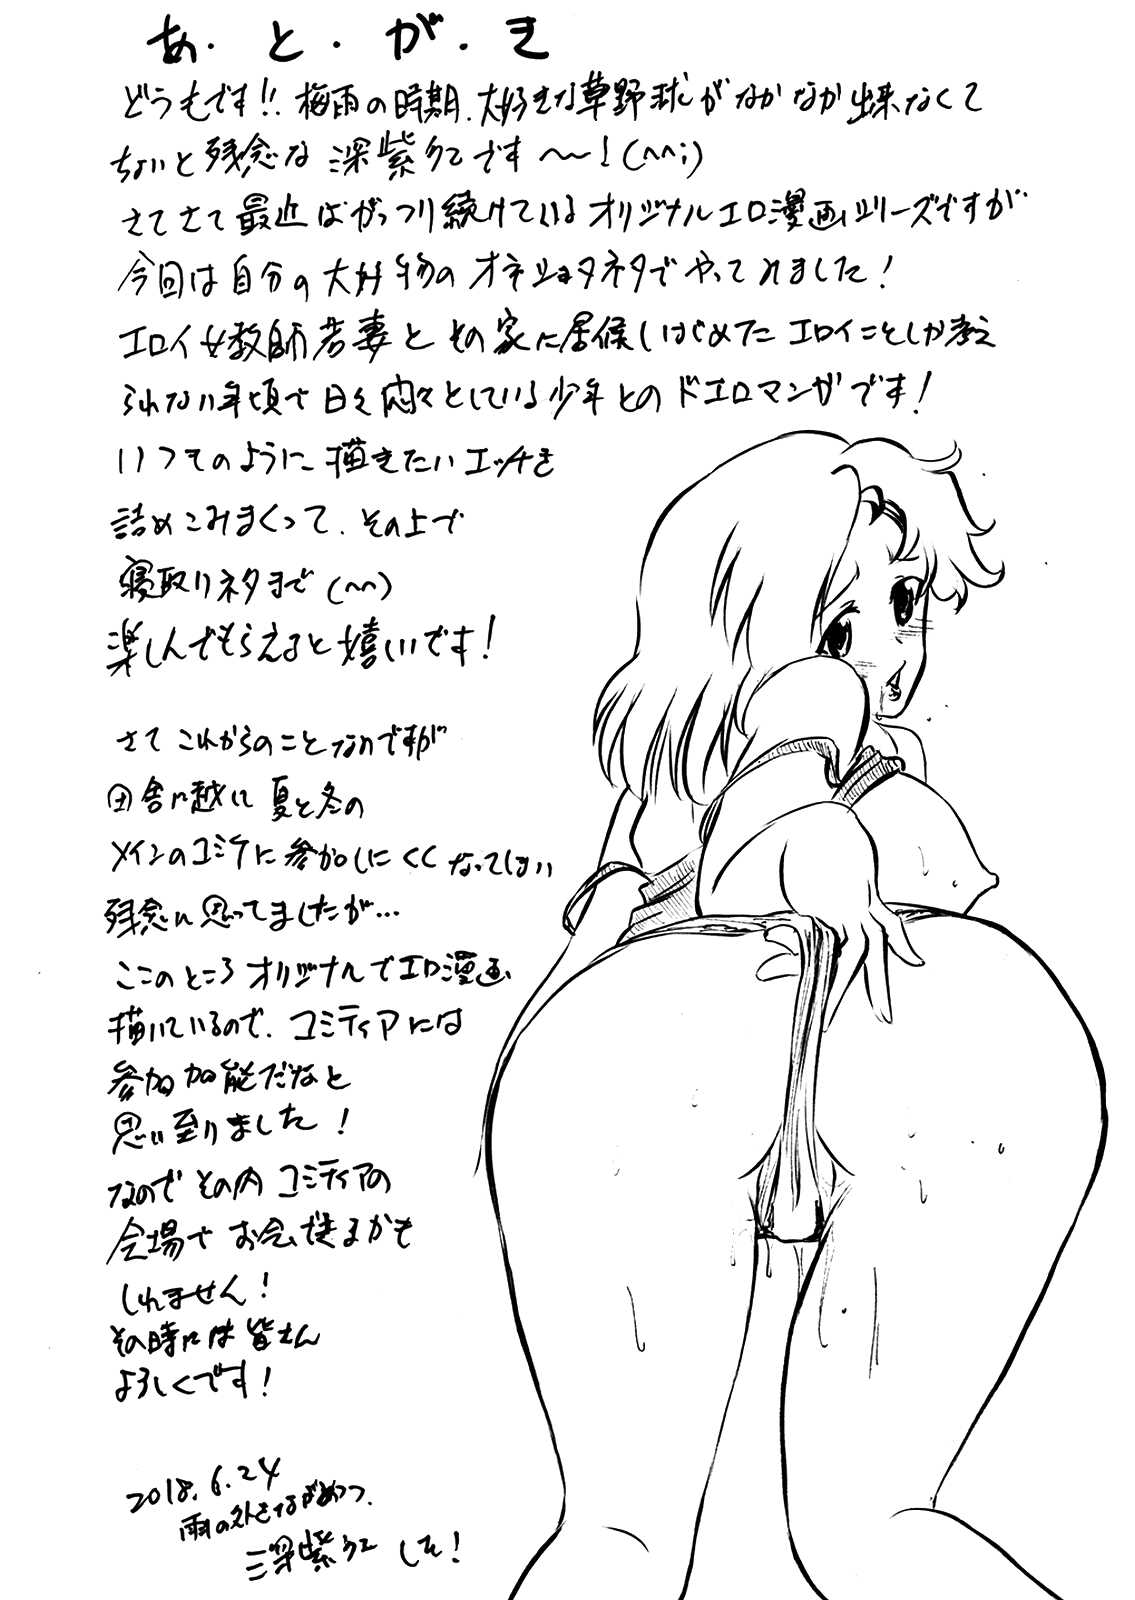 あ・と・が・き
どうもです!!梅雨の時期、大好きな草野球がなかなか出来なくて
ちょいと残念な深紫 です〜!(^^;)
さてさて最近はがっつり続けているオリジナルエロ漫画シリーズですが
今回は自分の大好物のオネショタネタでやってみました!
エロイ女教師若妻とその家に居候しはじめたエロイことしか考え
られない年頃で日々悶々としている少年とのドエロマンガです!
いつものように描きたいエッチを
詰めこみまくって、その上で
寝取りネタまで(^^)
楽しんでもらえると嬉しいです!
さてこれからのことなのですが
田舎に越して夏と冬の
メインのコミケに参加しにくくなってしまい
残念に思ってましたが…
ここのところオリジナルでエロ漫画
描いているので、コミティアには
参加可能だなと
思い至りました!
なのでその内コミティアの
会場でお会いできるかも
しれません!
その時には皆さん
よろしくです!
2018.6.24
雨の外をながめつつ、
深紫